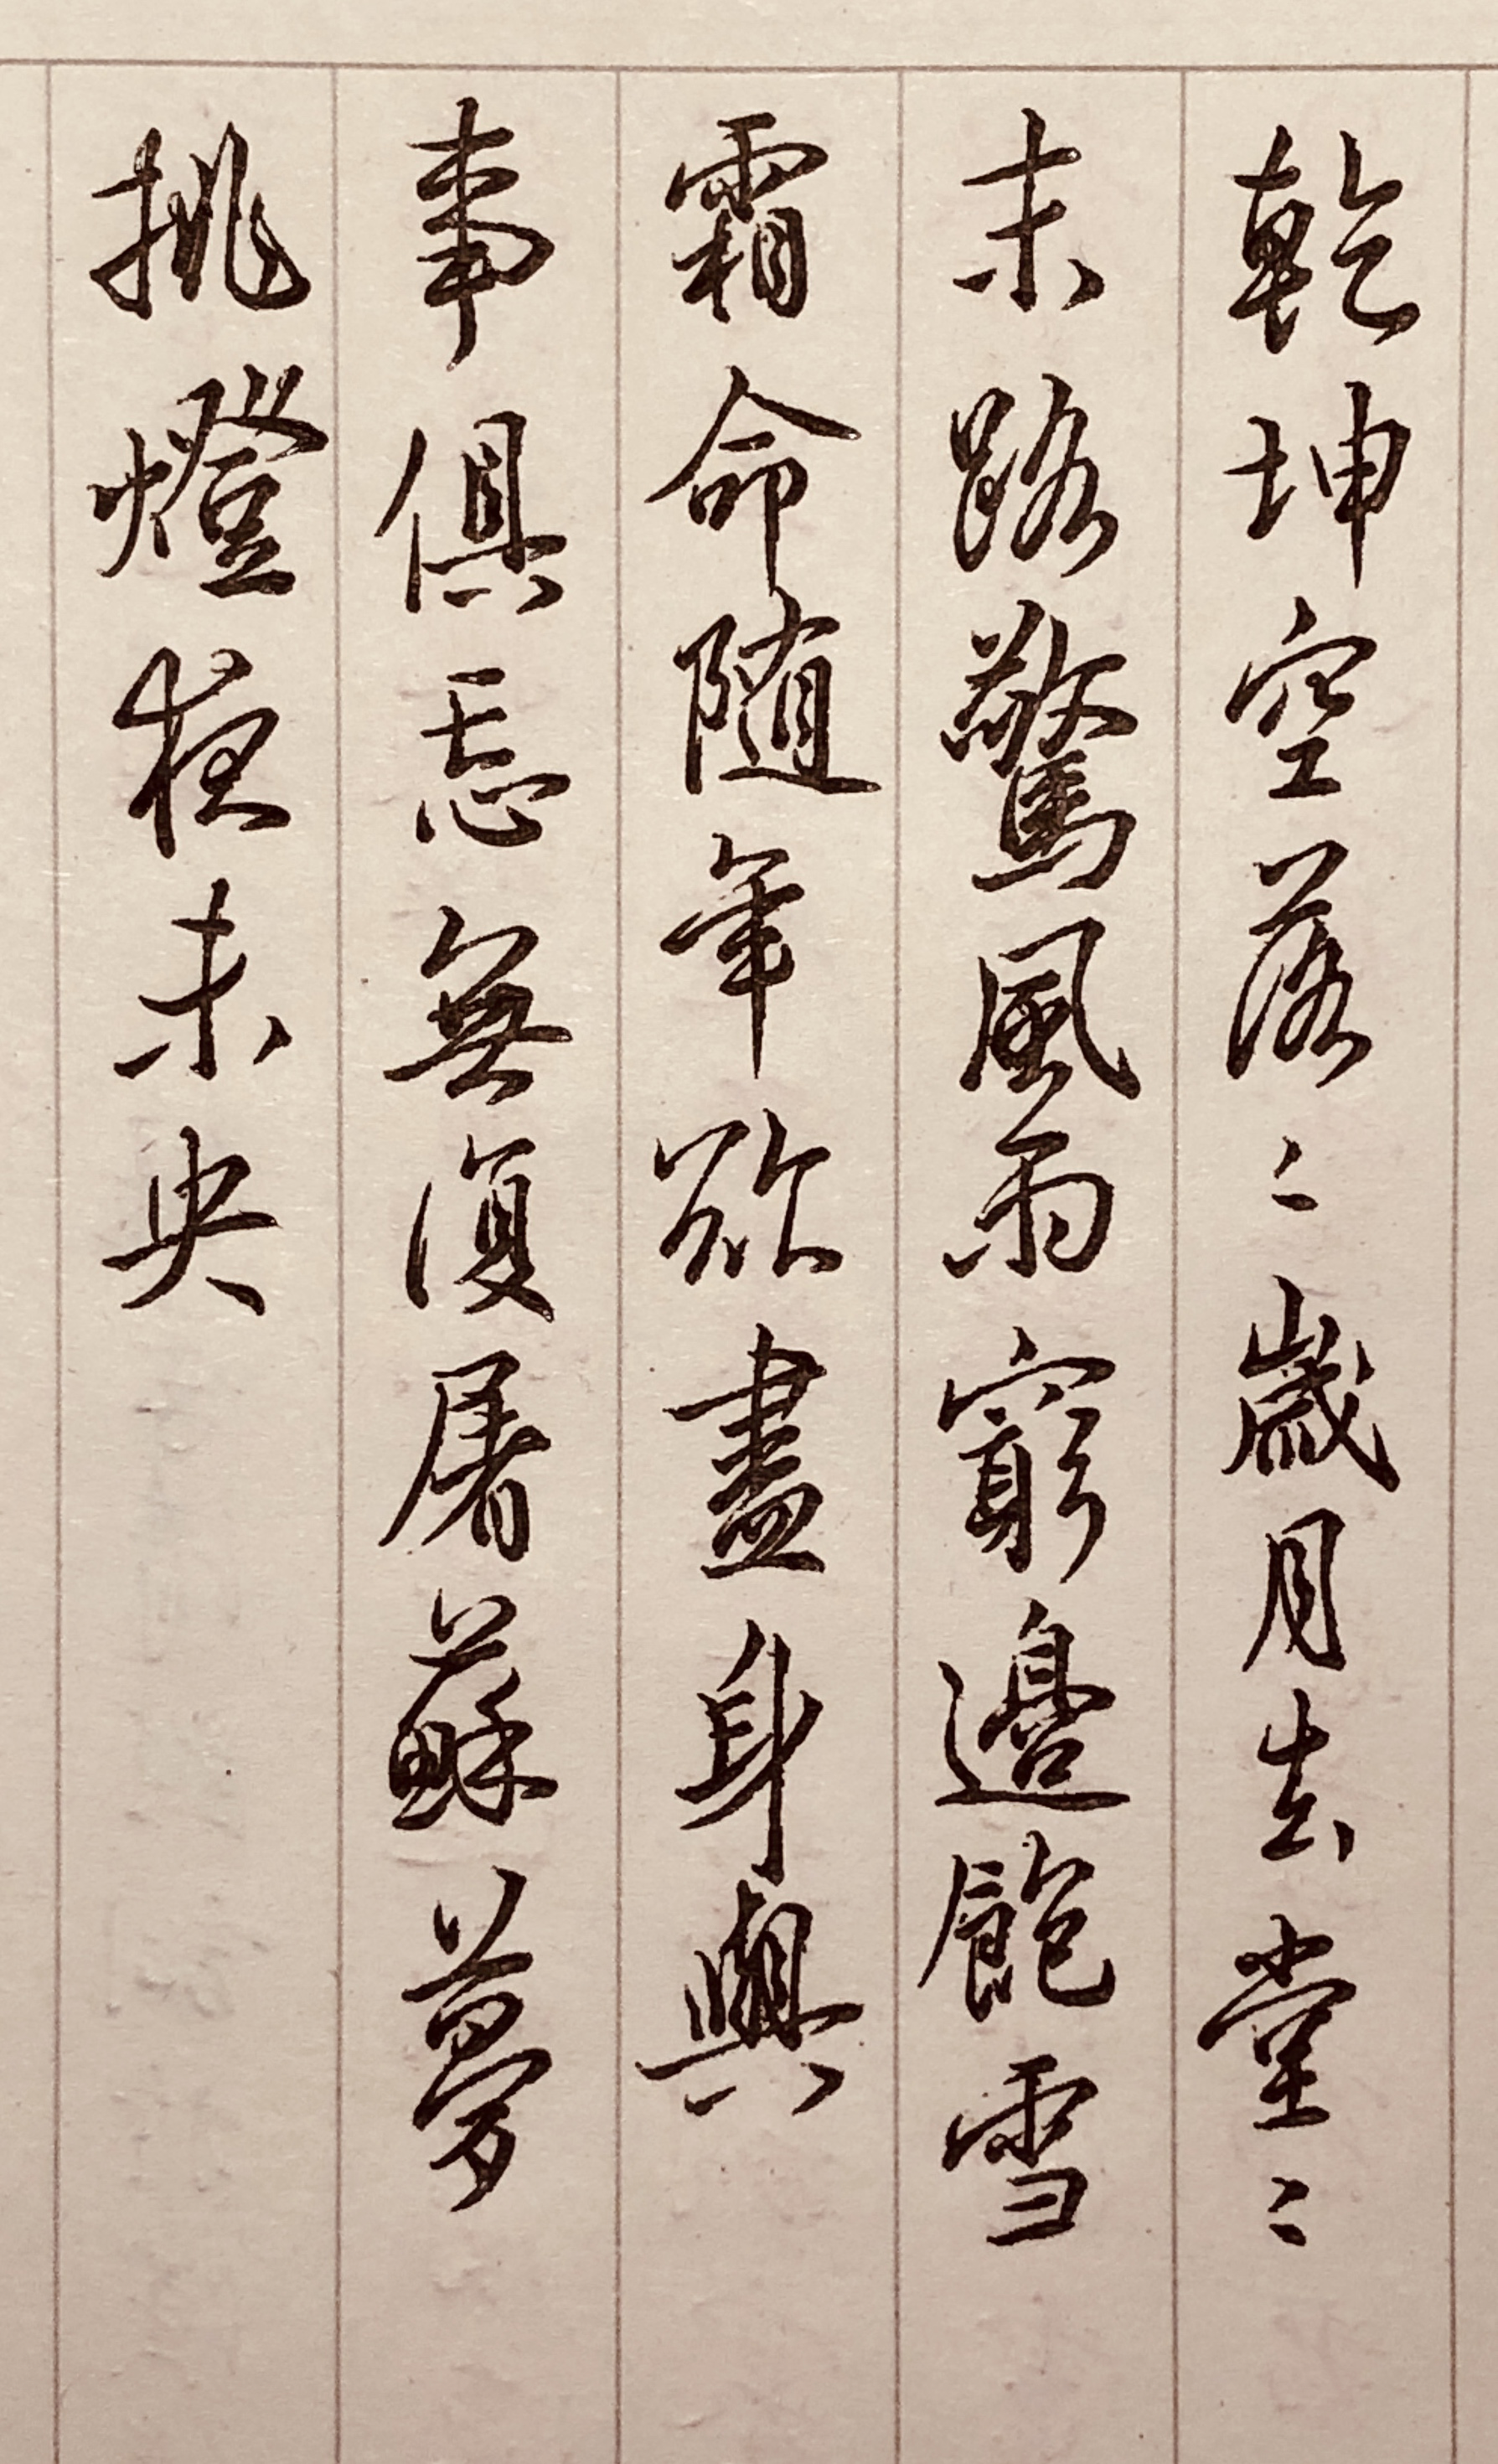 乾坤空落〻歲月去堂〻
末路驚風雨窮邊飽雪
霜命随年欲盡身與
事俱忘無復屠蘇夢
挑燈夜未央